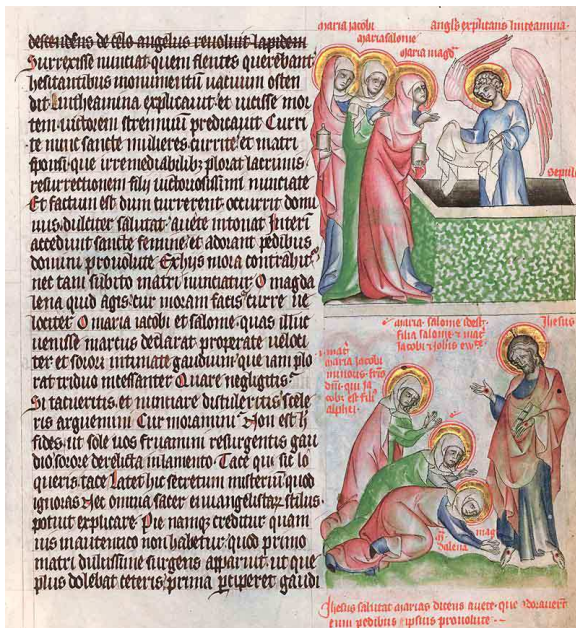 descendens de celo angelus revoluit lapidem
Surrexisse nunciat quem flentes querebant
hesitantibus monumentum vacuum osten
dit lintheamina explicavit et vicisse mor
tem victorem strennuum predicavit Curri
te nunc sancte mulieres currite et matri
sponsi que irremediabilibus plorat lacrimis
resurrectionem filii victoriosissimi nunciate
Et factum est dum currerent occurrit domi
nus dulciter salutat avete intonat Interim
accedunt sancte femine et adorant pedibus
domini provolute Ex hys mora contrahitur
nec tam subito matri nunciatur O magda
lena quid agis cur moram facis curre ve
lociter O maria iacobi et salome quas illuc
venisse marcus declarat properate veloci
ter et sorori intimate gaudium que iam plo
rat triduo incessanter Quare negligitis
Si tacueritis et nunciare distuleritis scele
ris arguemini Cur moramini Non est h
fides ut sole vos fruamini resurgentis gau
dio sorore derelicta in lamento Tace qui sic lo
queris tace Latet hic secretum misterium quod
ignoras Nec omnia sacer ewangelistarum stilus
potuit explicare Pie namque creditur quam
vis in autentico non habetur quod primo
matri dulcissime surgens apparuit ut que
plus dolebat ceteris prima perciperet gaudi
maria iacobi
maria salome
maria magd
anglus explicans linteamina
sepulc
maria salome idest
filia salome et mater
iacobi et iohannis ew
Jhesus
maria iacobi
minoris fris
dni qui ia
cobi est filius
alphei
mag
dalena
Jhesus salutat marias dicens avete que adoraverunt
eum pedibus ipsius provolute